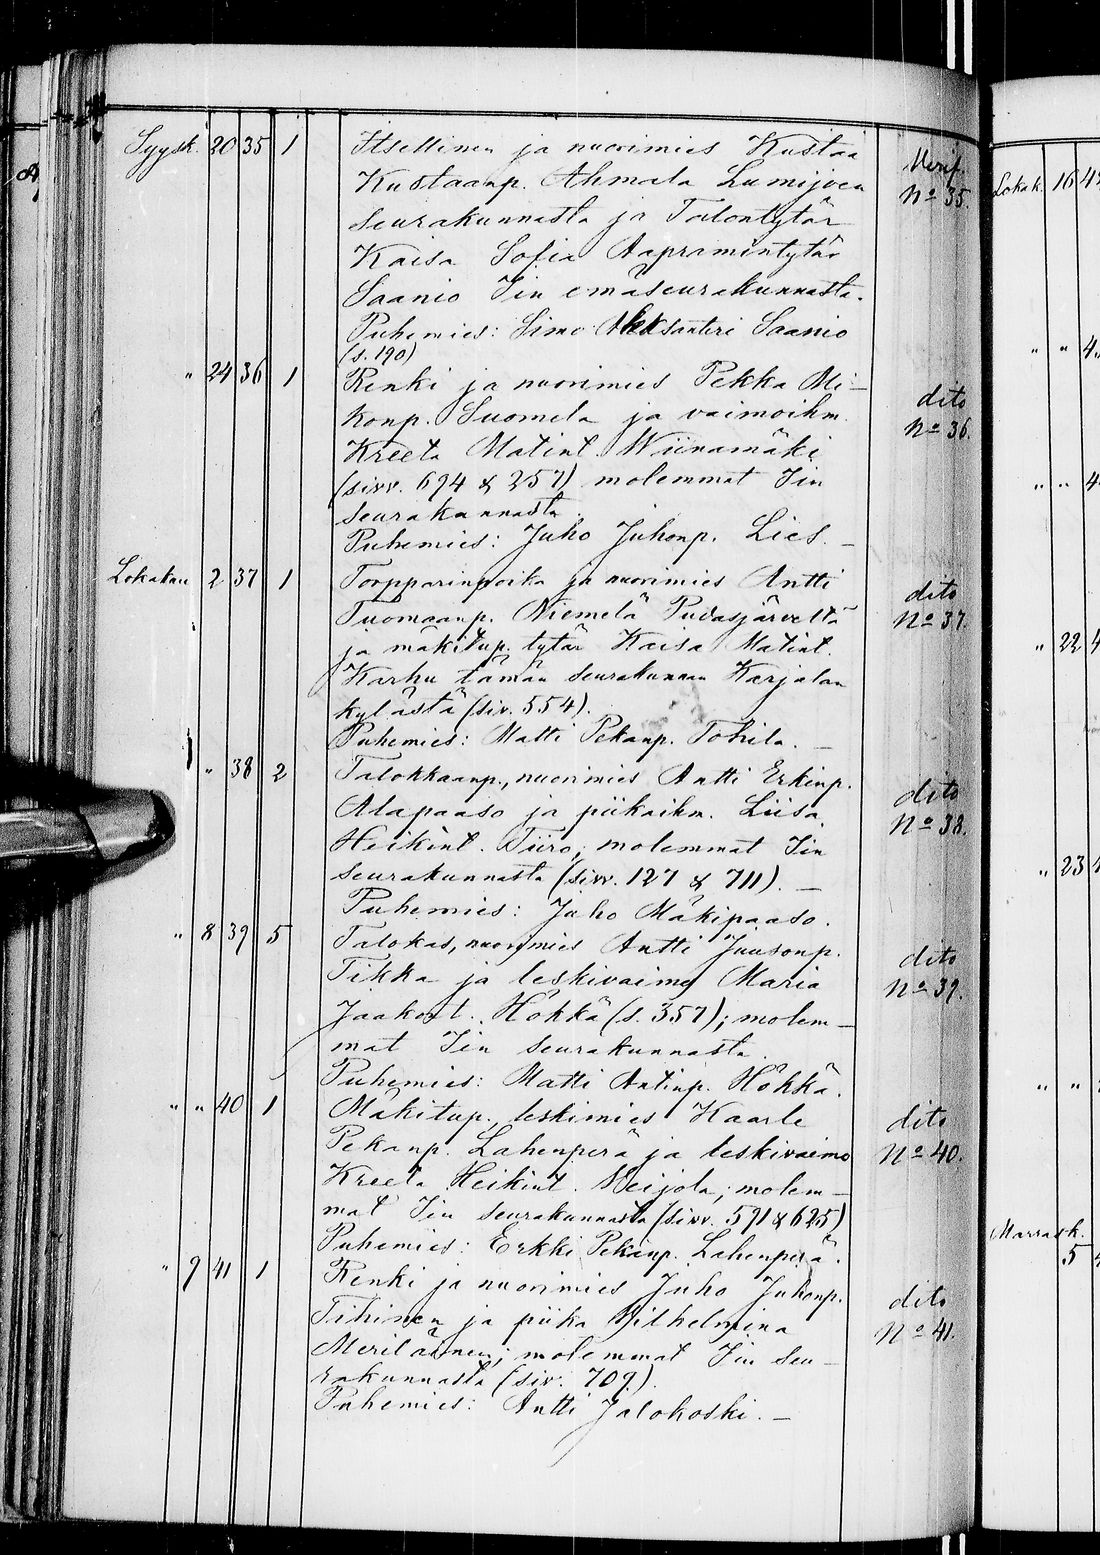 Syysk. 20 35 1 Itsellinen ja nuorimies Kustaa Merif.
Kustaanp. Ahmala Lumijoen No 35.
seurakunnasta ja Talontytär
Kaisa Sofia Aapramintytär
Saanio Iin emäseurakunnasta.
Puhemies: Simo Aleksanteri Saanio
(s. 190)
" 24 36 1 Renki ja nuorimies Pekka Mi- dito
konp. Suomela ja vaimoihm. No 36.
Kreeta Matint. Wiinamäki
(sivv. 694 & 257) molemmat Iin
seurakunnasta.
Puhemies: Juho Juhonp. Lies. —
Lokakuu 2 37 1 Torpparinpoika ja nuorimies Antti dito
Tuomaanp. Niemelä Pudasjärveltä No 37.
ja mäkitup. tytär Kaisa Matint.
Karhu tämän seurakunnan Karjalan
kylästä (siv. 554).
Puhemies: Matti Pekanp. Tohila. —
" 38 2 Talokkaanp., nuorimies Antti Erkinp. dito
Alapaaso ja piikaihm. Liisa No 38.
Heikint. Tiiro; molemmat Iin
seurakunnasta (sivv. 127 & 711). —
Puhemies: Juho Mäkipaaso.
" 8 39 5 Talokas, nuorimies Antti Juusonp. dito
Tikka ja leskivaimo Maria No 39.
Jaakont. Hökkä (s. 357); molem-
mat Iin seurakunnasta.
Puhemies: Matti Antinp. Hökkä.
" " 40 1 Mäkitup., leskimies Kaarle dito
Pekanp. Lahenperä ja leskivaimo No 40.
Kreeta Heikint. Meijola; molem-
mat Iin seurakunnasta (sivv. 591 & 625)
Puhemies: Erkki Pekanp. Lahenperä.
" 9 41 1 Renki ja nuorimies Juho Juhonp. dito
Tihinen ja piika Wilhelmina No 41.
Meriläinen; molemmat Iin seu-
rakunnasta (siv. 709).
Puhemies: Antti Jalokoski. —
Lokak. 16
" "
" "
" 22
" 23
" "
Marrask.
5